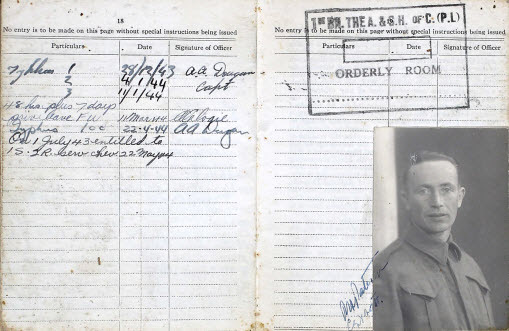 18
No entry is to be made on this page without special instructions being issued
Particulars Date Signature of Officer
Typhus 1 28/12/43 A.A. Drugan
2 4/1/44 Capt
3 11/1/44
48 hrs plus 7 days
Priv. leave FU 11 Mar 44
Typhus 1cc 22-4-44 AA Drugan
On 1 July 43 entitled to
1 S. &R serv chev 22 May 44
No entry is to be made on this page without special instructions being issued
Particulars Date Signature of Officer
1ST BN. THE A. & S.H. OF C. (P.L)
ORDERLY ROOM